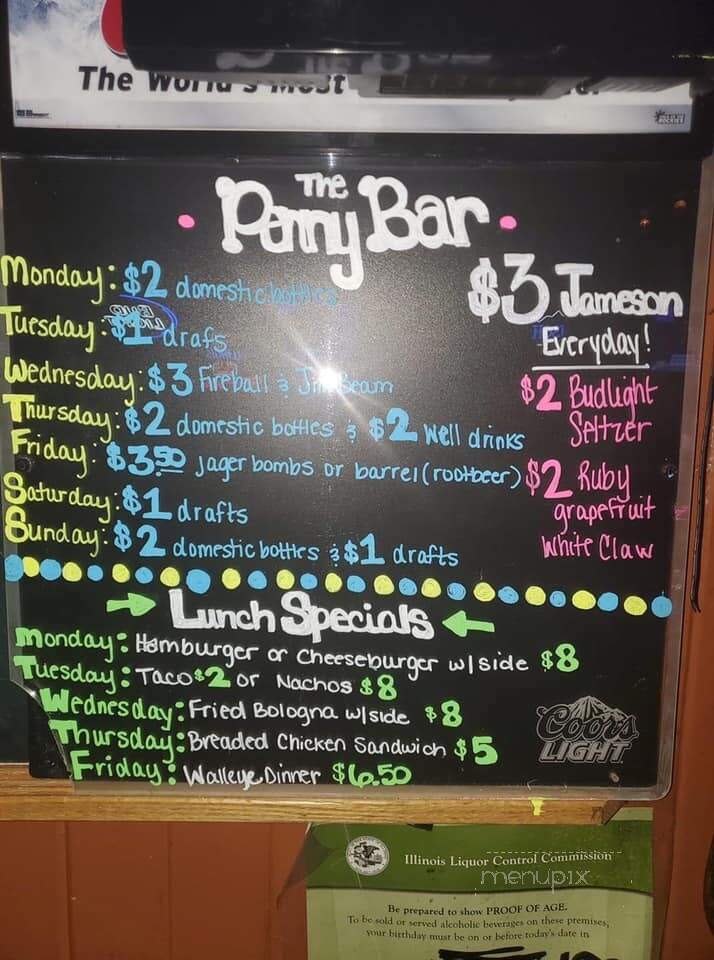 The World's Most
The
Penny Bar
Monday: $2 domestic bottles
Tuesday: $1 drafs
Wednesday: $3 Fireball & Jim Beam
Thursday: $2 domestic bottles & $2 well drinks
Friday: $3.50 Jager bombs or barrel (rootbeer)
Saturday: $1 drafts
Sunday: $2 domestic bottles & $1 drafts
$3 Jameson
Everyday!
$2 Budlight
Seltzer
$2 Ruby
grapefruit
White Claw
Lunch Specials
Monday: Hamburger or Cheeseburger w/side $8
Tuesday: Taco $2 or Nachos $8
Wednesday: Fried Bologna w/side $8
Thursday: Breaded Chicken Sandwich $5
Friday: Walleye Dinner $6.50
Coors
LIGHT
Illinois Liquor Control Commission
menupix
Be prepared to show PROOF OF AGE.
To be sold or served alcoholic beverages on these premises,
your birthday must be on or before today's date in